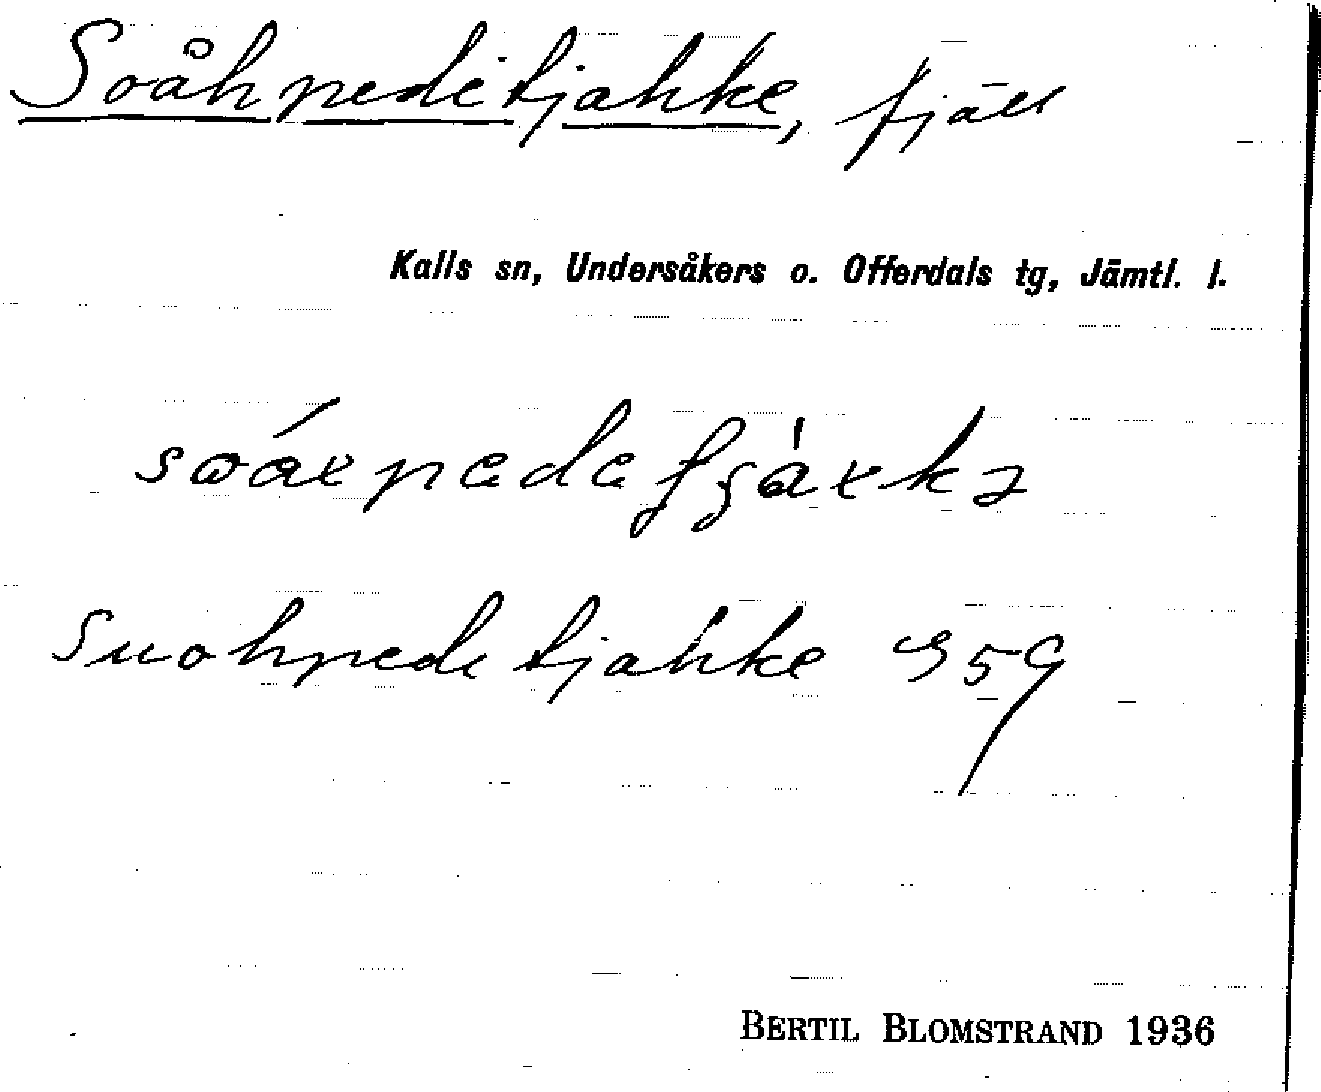 Soåhpeditjahke, fjäll
Kalls sn, Undersåkers o. Offerdals tg, Jämtl. l.
Suohpeditjahke 959
BERTIL BLOMSTRAND 1936